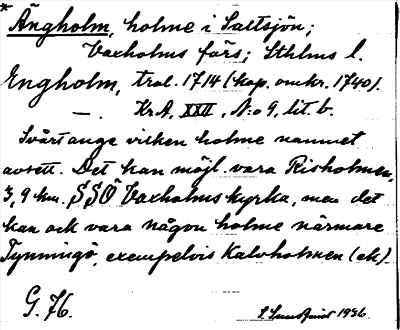 * Ängholm, holme i Saltsjön;
Vaxholms förs; Sthlms l.
Engholm, trol. 1714 (kop. omkr. 1740).
—. KrA, XXII, N:o 9, lit. b.
Svårt ange vilken holme namnet
avsett. Det kan möjl. vara Risholmen,
3,9 km. SSÖ Vaxholms kyrka, men det
kan ock vara någon holme närmare
Tynningö, exempelvis Kalvholmen (ek)
G. 76.
1936